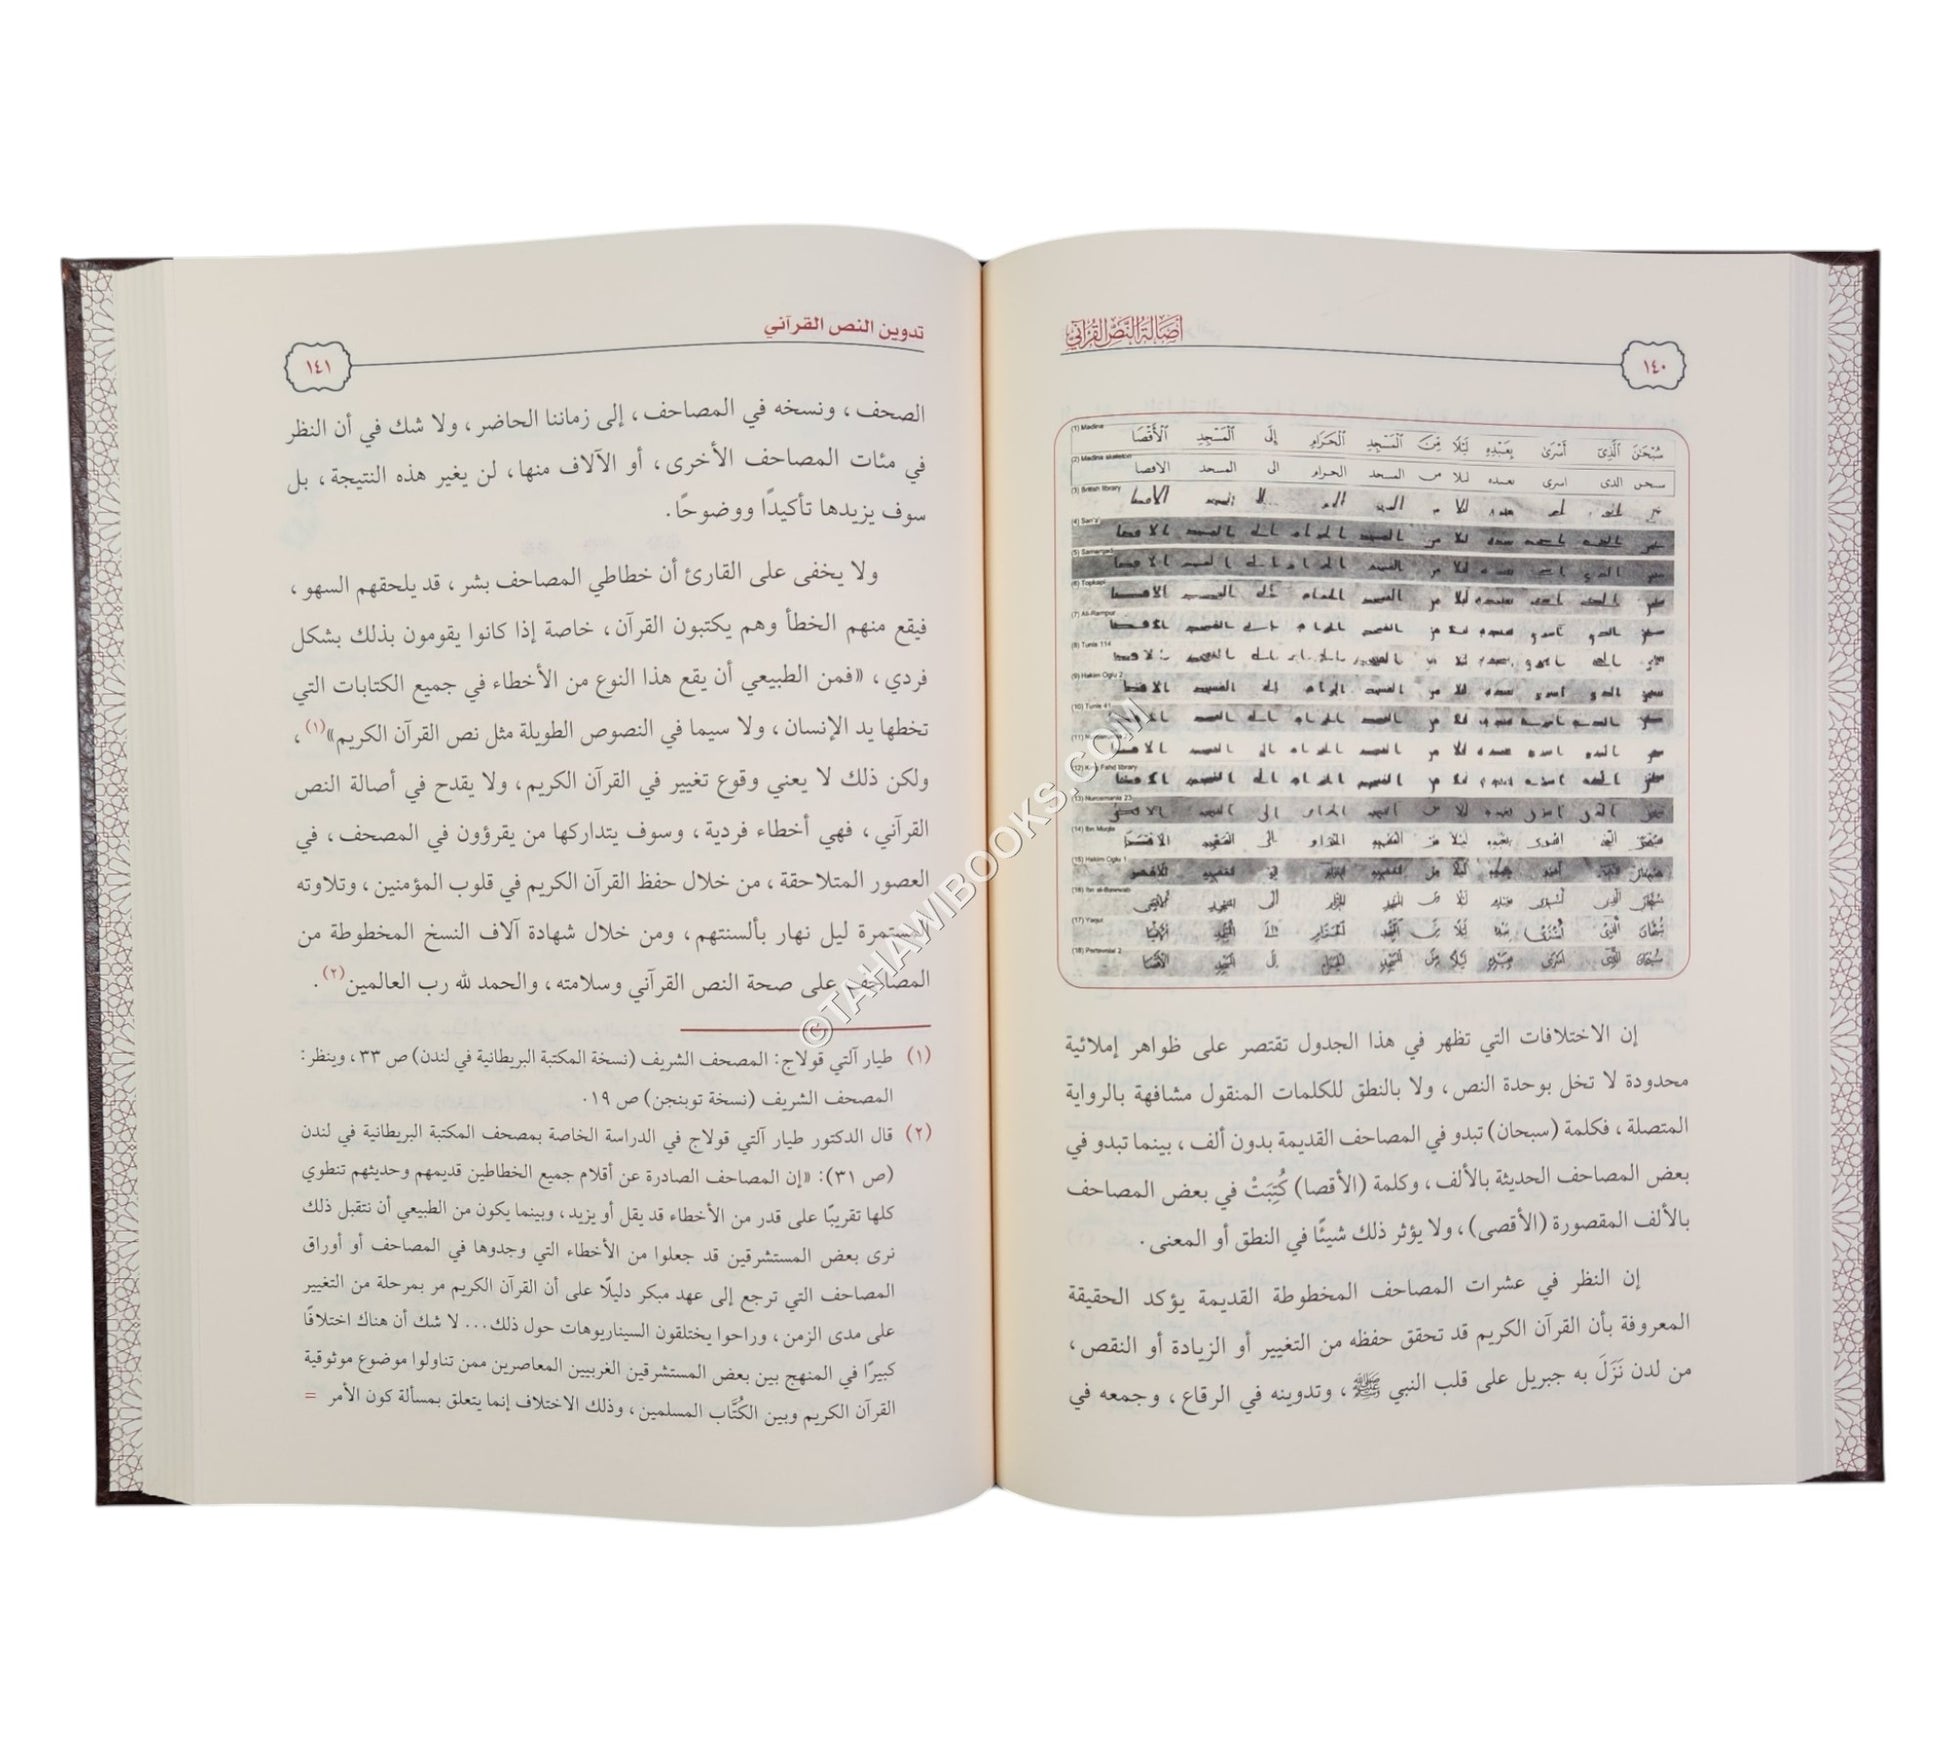 أصالة النص القرآني
١٤٠
(1) Madina
سُبْحَٰنَ ٱلَّذِىٓ أَسْرَىٰ بِعَبْدِهِۦ لَيْلًا مِّنَ ٱلْمَسْجِدِ ٱلْحَرَامِ إِلَى ٱلْمَسْجِدِ ٱلْأَقْصَا
(2) Madina skeleton
(3) British library
(4) San'a'
(5) Samarqand
(6) Topkapi
(7) Ali-Rampur
(8) Tunis 114
(9) Hakim Oglu 2
(10) Tunis 41
(12) Fahd library
(13) Nurosmania 23
(14) Ibn Muqla
(15) Hakim Oglu 1
(16) Ibn al-Bawwab
(17) Yaqut
(18) Pertevnial 2
إن الاختلافات التي تظهر في هذا الجدول تقتصر على ظواهر إملائية
محدودة لا تخل بوحدة النص، ولا بالنطق للكلمات المنقول مشافهة بالرواية
المتصلة، فكلمة (سبحان) تبدو في المصاحف القديمة بدون ألف، بينما تبدو في
بعض المصاحف الحديثة بالألف، وكلمة (الأقصا) كُتِبَتْ في بعض المصاحف
بالألف المقصورة (الأقصى)، ولا يؤثر ذلك شيئًا في النطق أو المعنى.
إن النظر في عشرات المصاحف المخطوطة القديمة يؤكد الحقيقة
المعروفة بأن القرآن الكريم قد تحقق حفظه من التغيير أو الزيادة أو النقص،
من لدن نَزَلَ به جبريل على قلب النبي ﷺ، وتدوينه في الرقاع، وجمعه في
تدوين النص القرآني
١٤١
الصحف، ونسخه في المصاحف، إلى زماننا الحاضر، ولا شك في أن النظر
في مئات المصاحف الأخرى، أو الآلاف منها، لن يغير هذه النتيجة، بل
سوف يزيدها تأكيدًا ووضوحًا.
ولا يخفى على القارئ أن خطاطي المصاحف بشر، قد يلحقهم السهو،
فيقع منهم الخطأ وهم يكتبون القرآن، خاصة إذا كانوا يقومون بذلك بشكل
فردي، «فمن الطبيعي أن يقع هذا النوع من الأخطاء في جميع الكتابات التي
تخطها يد الإنسان، ولا سيما في النصوص الطويلة مثل نص القرآن الكريم»(١)،
ولكن ذلك لا يعني وقوع تغيير في القرآن الكريم، ولا يقدح في أصالة النص
القرآني، فهي أخطاء فردية، وسوف يتداركها من يقرؤون في المصحف، في
العصور المتلاحقة، من خلال حفظ القرآن الكريم في قلوب المؤمنين، وتلاوته
المستمرة ليل نهار بألسنتهم، ومن خلال شهادة آلاف النسخ المخطوطة من
المصاحف على صحة النص القرآني وسلامته، والحمد لله رب العالمين(٢).
(١) طيار آلتي قولاج: المصحف الشريف (نسخة المكتبة البريطانية في لندن) ص ٣٣، وينظر:
المصحف الشريف (نسخة توبنجن) ص ١٩.
(٢) قال الدكتور طيار آلتي قولاج في الدراسة الخاصة بمصحف المكتبة البريطانية في لندن
(ص ٣١): «إن المصاحف الصادرة عن أقلام جميع الخطاطين قديمهم وحديثهم تنطوي
كلها تقريبًا على قدر من الأخطاء قد يقل أو يزيد، وبينما يكون من الطبيعي أن نتقبل ذلك
نرى بعض المستشرقين قد جعلوا من الأخطاء التي وجدوها في المصاحف أو أوراق
المصاحف التي ترجع إلى عهد مبكر دليلًا على أن القرآن الكريم مر بمرحلة من التغيير
على مدى الزمن، وراحوا يختلقون السيناريوهات حول ذلك... لا شك أن هناك اختلافًا
كبيرًا في المنهج بين بعض المستشرقين الغربيين المعاصرين ممن تناولوا موضوع موثوقية
القرآن الكريم وبين الكُتَّاب المسلمين، وذلك الاختلاف إنما يتعلق بمسألة كون الأمر =
©TAHAWIBOOKS.COM